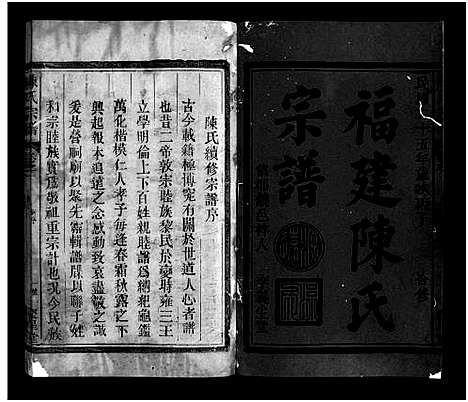 福建陳氏
宗譜
陳氏續修宗譜序
古今載籍極博究有關於世道人心者譜
也昔二帝敦宗睦族黎民於變時雍三王
立學明倫上下百姓親睦譜爲綱紀龜鑑
萬化楷模仁人孝子每逢春霜秋露之下
興起報本追遠之念感動致哀盡敬之誠
爰是營嗣廟以聚先靈輯譜牒以聯子姓
和宗睦族實爲敬祖重宗計也現今民族